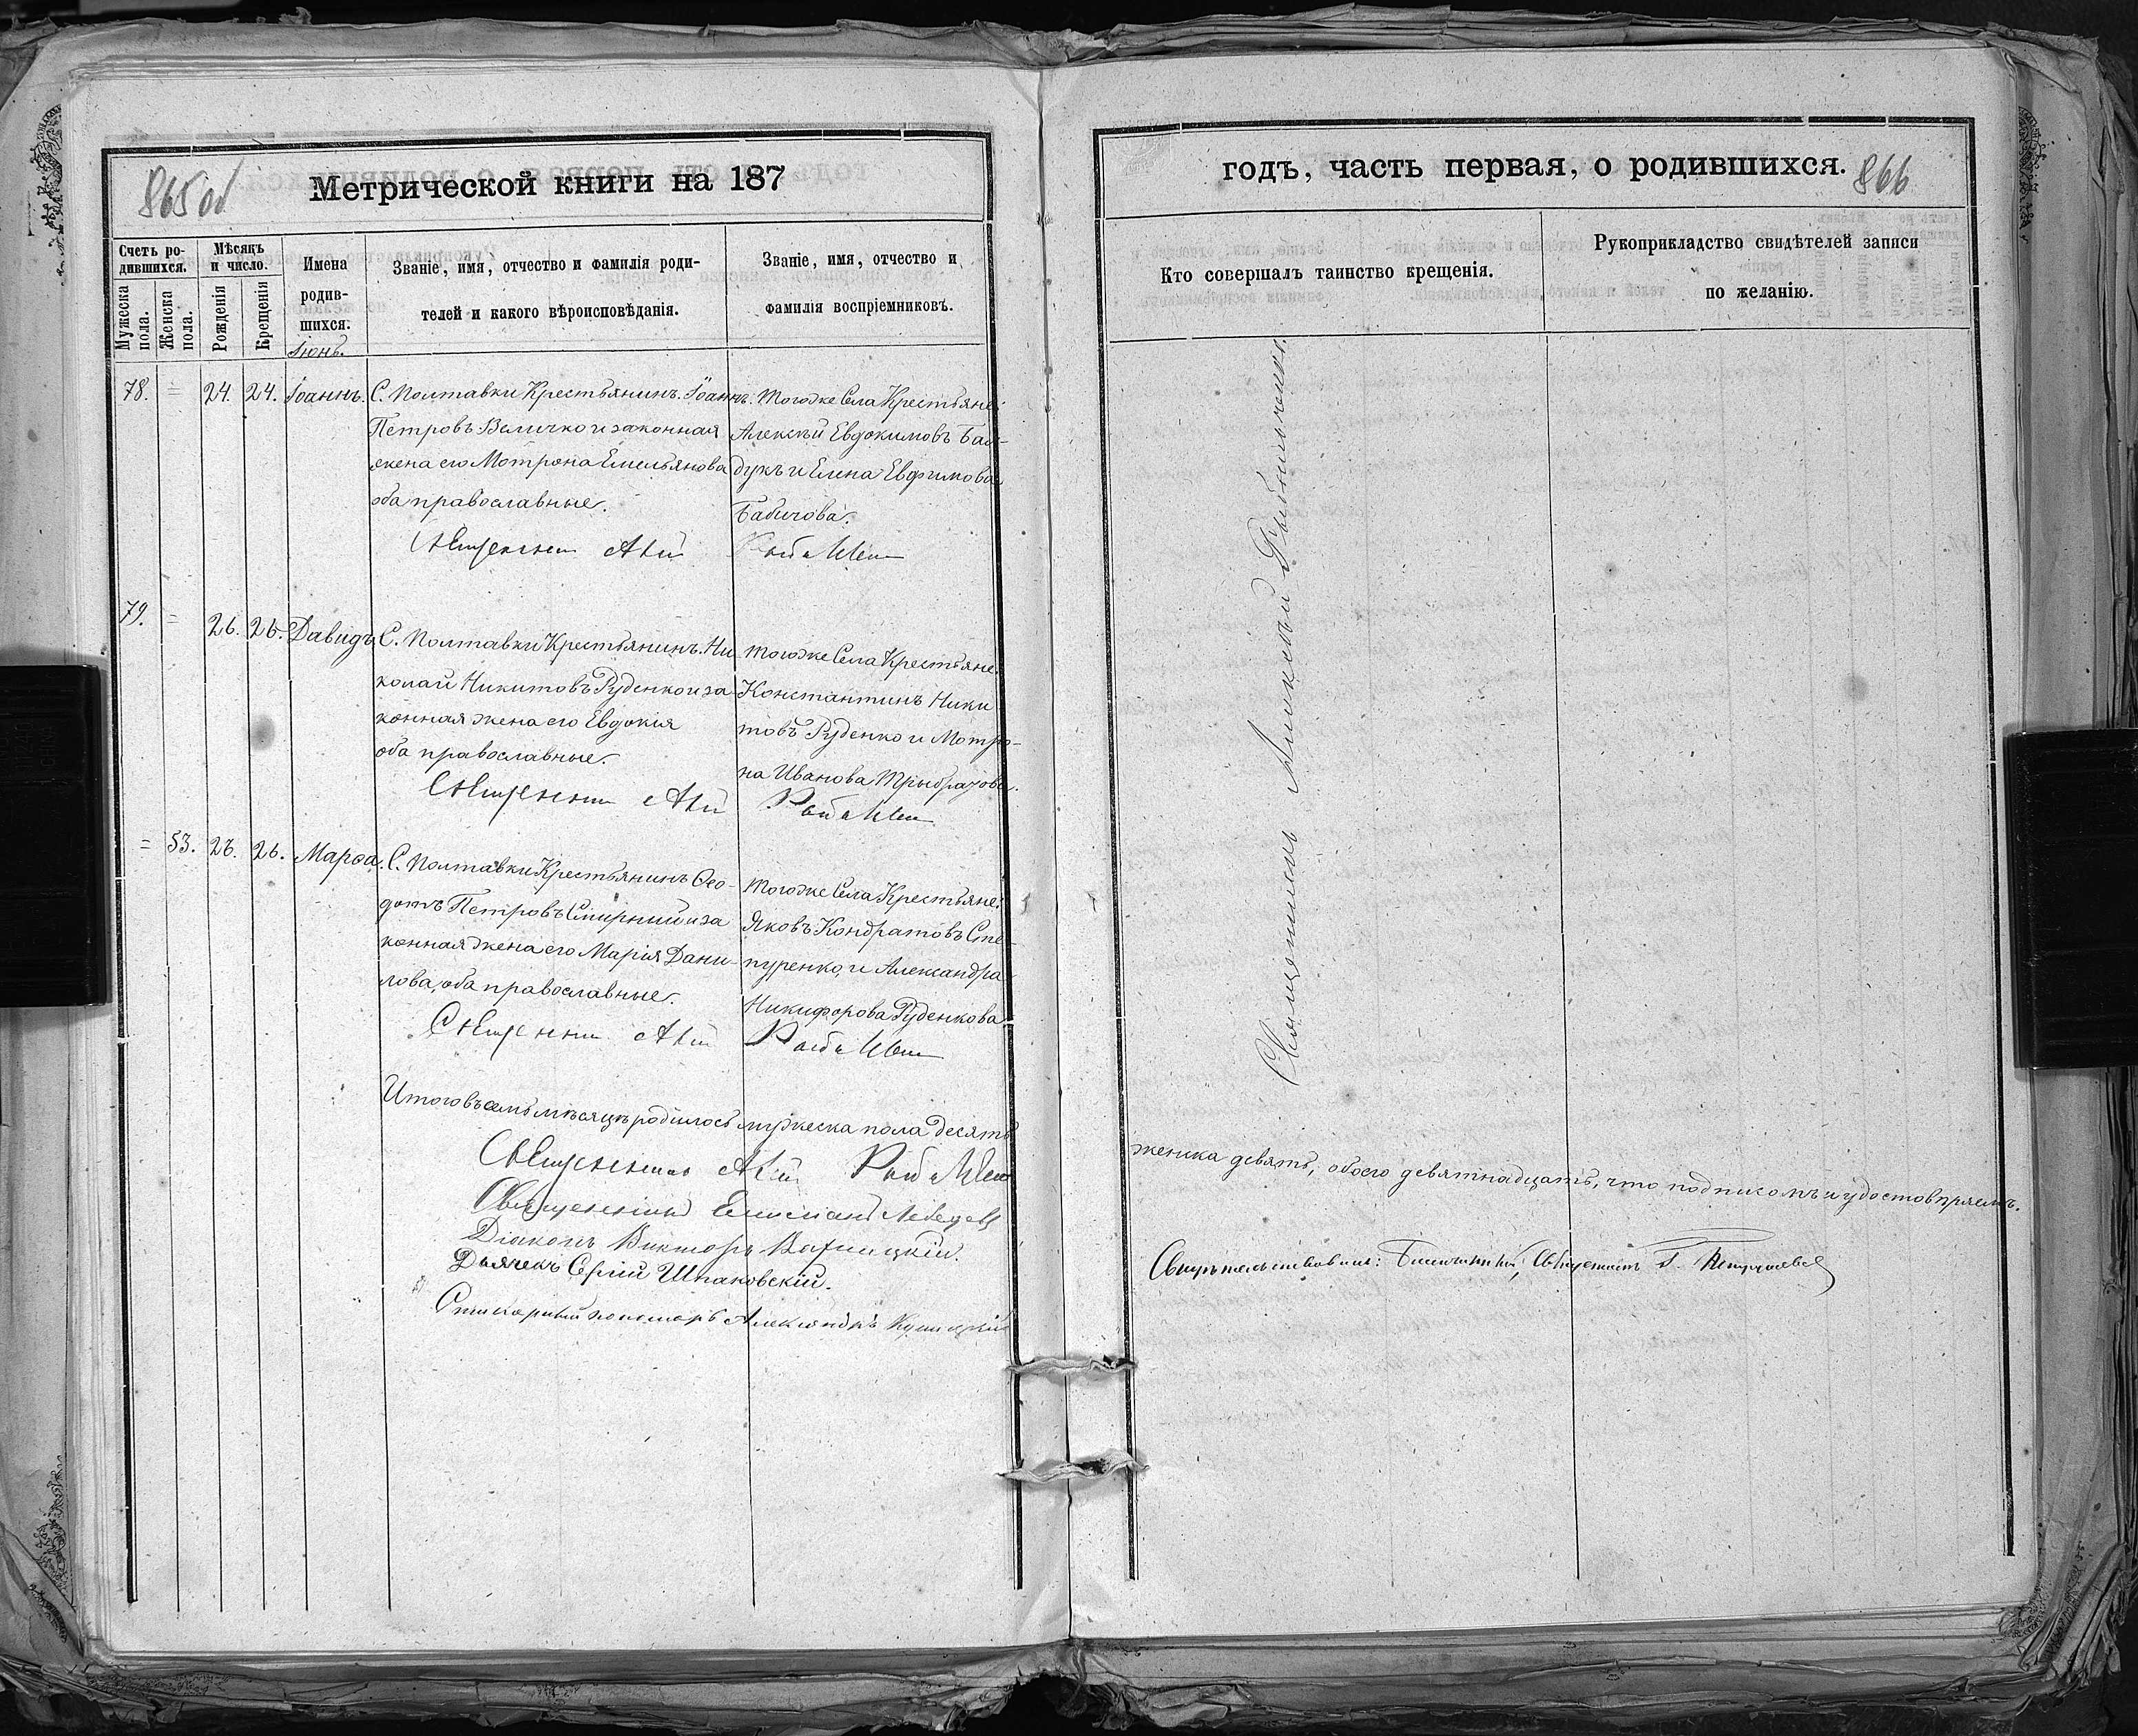 865 об
Метрической книги на 187
Счетъ ро-
дившихся.
Мужеска
пола.
Женска
пола.
Мѣсяцъ
и число.
Рожденія
Крещенія
Имена
родив-
шихся.
Званіе, имя, отчество и фамилія роди-
телей и какого вѣроисповѣданія.
Званіе, имя, отчество и
фамилія воспріемниковъ.
Іюнь.
78. = 24. 24. Іоаннъ.
С. Полтавки Крестьянинъ. Іоаннъ.
Петровъ Величко и законная
жена его Мотрона Емельянова
оба православные.
Тогоже Села Крестьяне:
Алексѣй Евдокимовъ
и Елена Евфимова
Бабичова.
79. = 26. 26. Давидъ
С. Полтавки Крестьянинъ. Ни
колай Никитовъ Руденко и за
конная жена его Евдокія
оба православные.
Тогоже Села Крестьяне.
Константинъ Ники
товъ Руденко и Мотро-
на Иванова
= 53. 26. 26. Марѳа.
С. Полтавки Крестьянинъ Ѳео-
дотъ Петровъ Смирный и за
конная жена его Марія Дани-
лова, оба православные.
Тогоже Села Крестьяне:
Яковъ Кондратовъ Сте-
пуренко, и Александра
Никифорова Руденкова.
Итого въ семъ мѣсяцѣ родилось мужеска пола десять
Священникъ Лебедевъ
Діаконъ Викторъ
Дьячекъ Сергій Шпаковскій.
пономарь Александръ
годъ, часть первая, о родившихся.
866
Кто совершалъ таинство крещенія.
Рукоприкладство свидѣтелей записи
по желанію.
Священникъ Алексѣй
женска девять, обоего девятнадцать, что подписомъ и удостовѣряемъ.
Свидѣтельствовалъ: Благочинный, Священникъ